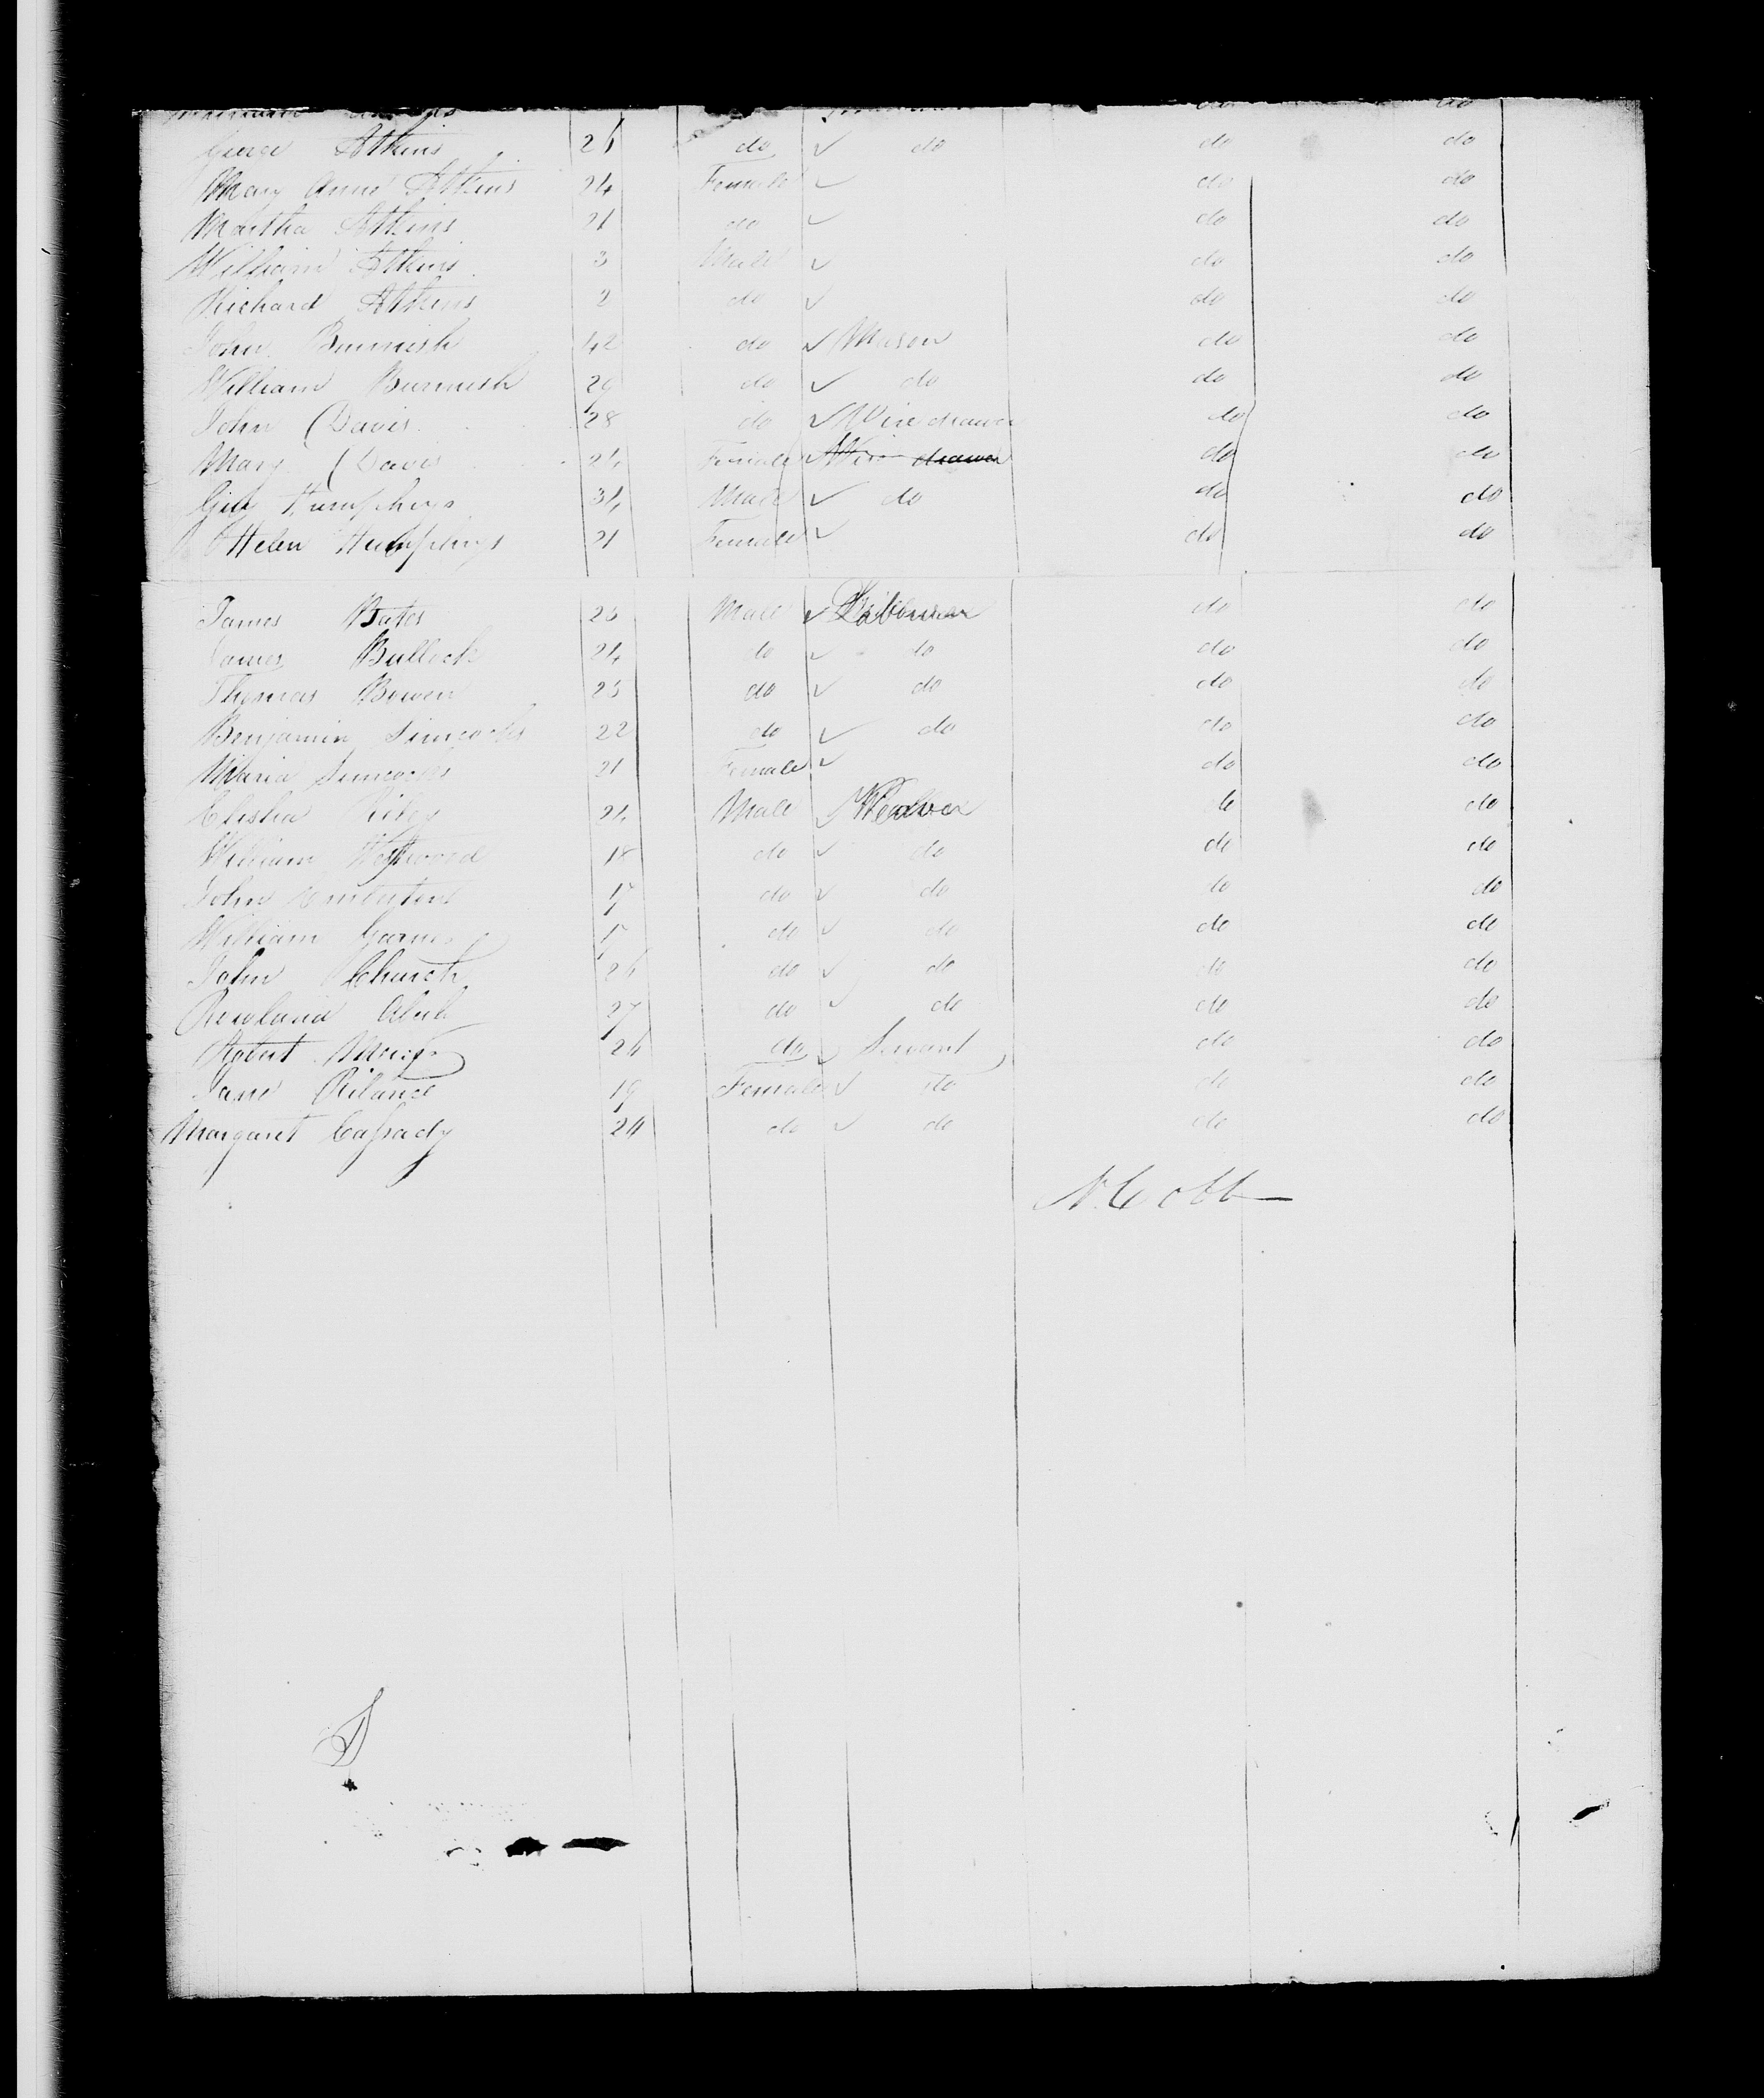 George Atkins 26 do ✓ do do do
Mary Anne Atkins 24 Female ✓ do do
Martha Atkins 21 do ✓ do do
William Atkins 3 Male ✓ do do
Richard Atkins 2 do ✓ do do
John Burmish 42 do ✓ Mason do do
William Burmish 29 do ✓ do do do
John Davis 28 do ✓ Wire drawer do do
Mary Davis 24 Female Wire drawer do do
Humphreys 34 Male ✓ do do do
Helen Humphreys 21 Female ✓ do do
James Bates 23 Male ✓ Labourer do do
James Bullock 24 do ✓ do do do
Thomas Bowen 23 do ✓ do do do
Benjamin Simcocks 22 do ✓ do do do
Maria Simcocks 21 Female ✓ do do
Elisha Riley 24 Male ✓ Weaver do do
William Westwood 18 do ✓ do do do
John 17 do ✓ do do do
William 17 do ✓ do do do
John Church 26 do ✓ do do do
Rowland 27 do ✓ do do do
Robert 24 do ✓ Servant do do
Jane Rilance 19 Female ✓ do do do
Margaret Caſsady 24 do ✓ do do do
N. Cobb